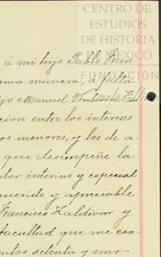 CENTRO DE
ESTUDIOS
DE HISTORIA
MÉXICO
FUNDACIÓN
á mi hijo Pablo Fran
misma manera, á
Manuel
cion entre los intereses
os menores, y los de á
que desempeñe la
tor interino y especial
querido y apreciable
Francisco Zaldivar y
facultad que me con
ntos setenta y uno